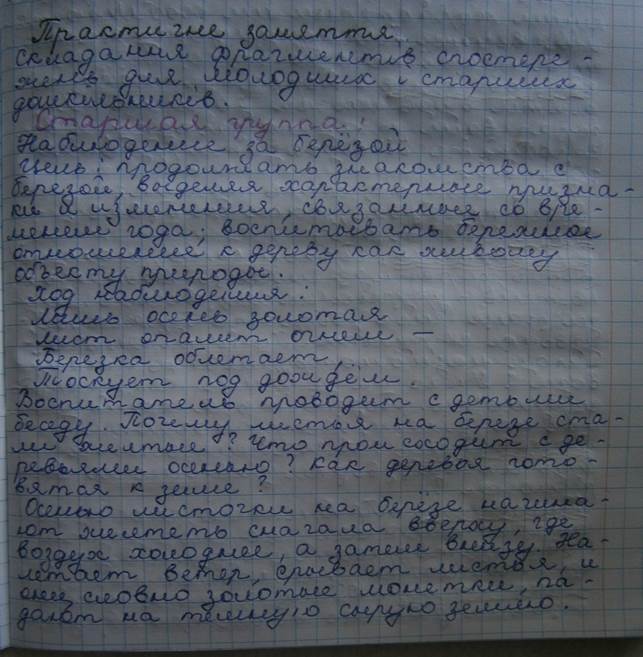 Практичне заняття
складання фрагментів спостере-
жень для молодших і старших
дошкільників.
Старшая группа:
Наблюдение за берёзой
Цель: продолжать знакомства с
берёзой, выделяя характерные призна-
ки и изменения, связанные со вре-
менем года; воспитывать бережное
отношение к дереву как живому
объекту природы.
Ход наблюдения:
Лишь осень золотая
Лист опалит огнем —
Березка облетает,
Тоскует под дождём.
Воспитатель проводит с детьми
беседу. Почему листья на березе ста-
ли желтые? Что происходит с де-
ревьями осенью? Как деревья гото-
вятся к зиме?
Осенью листочки на берёзе начина-
ют желтеть сначала вверху, где
воздух холоднее, а затем внизу. На-
летает ветер, срывает листья, и
они, словно золотые монетки, па-
дают на темную сырую землю.